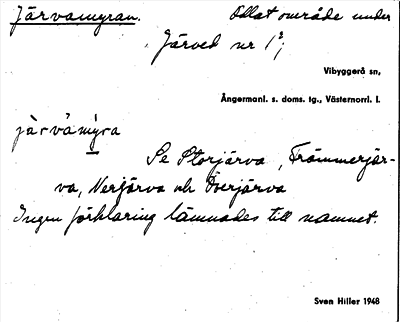 Järvamyran. Odlat område under
Järved nr 1²;
Vibyggerå sn,
Ångermanl. s. doms. tg., Västernorrl. l.
jàrvàmýra
Se Storjärva, Främmerjär-
va, Nerjärva och Överjärva
Ingen förklaring lämnades till namnet.
Sven Hiller 1948